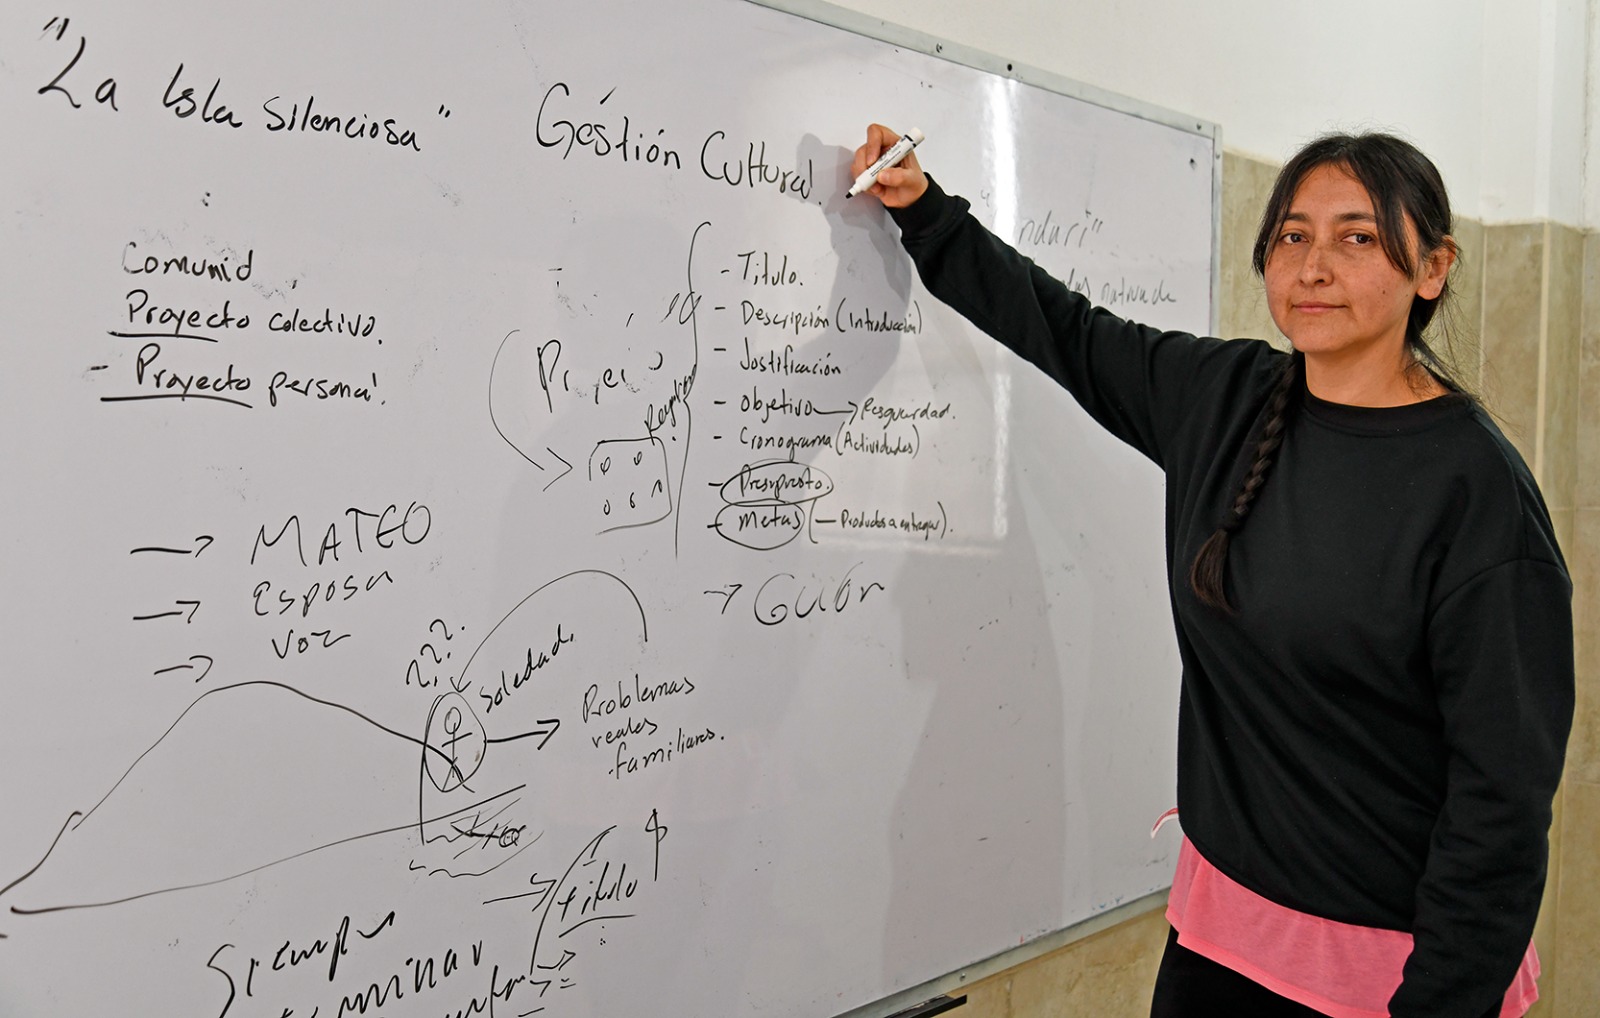 "La Isla Silenciosa"
Géstión Cultural.
Comunid
Proyecto colectivo.
- Proyecto personal.
- Título.
- Descripción (Introducción)
- Jostificación
- Objetivo → Resguardad.
- Cronograma (Actividades)
- Presupuesto.
- Metas (- Productos a entregar).
→ MATEO
→ Esposa
→ Voz
→ Guión
???
Soledad.
→ Problemas
reales
familiares.
$
→ título
Siempre